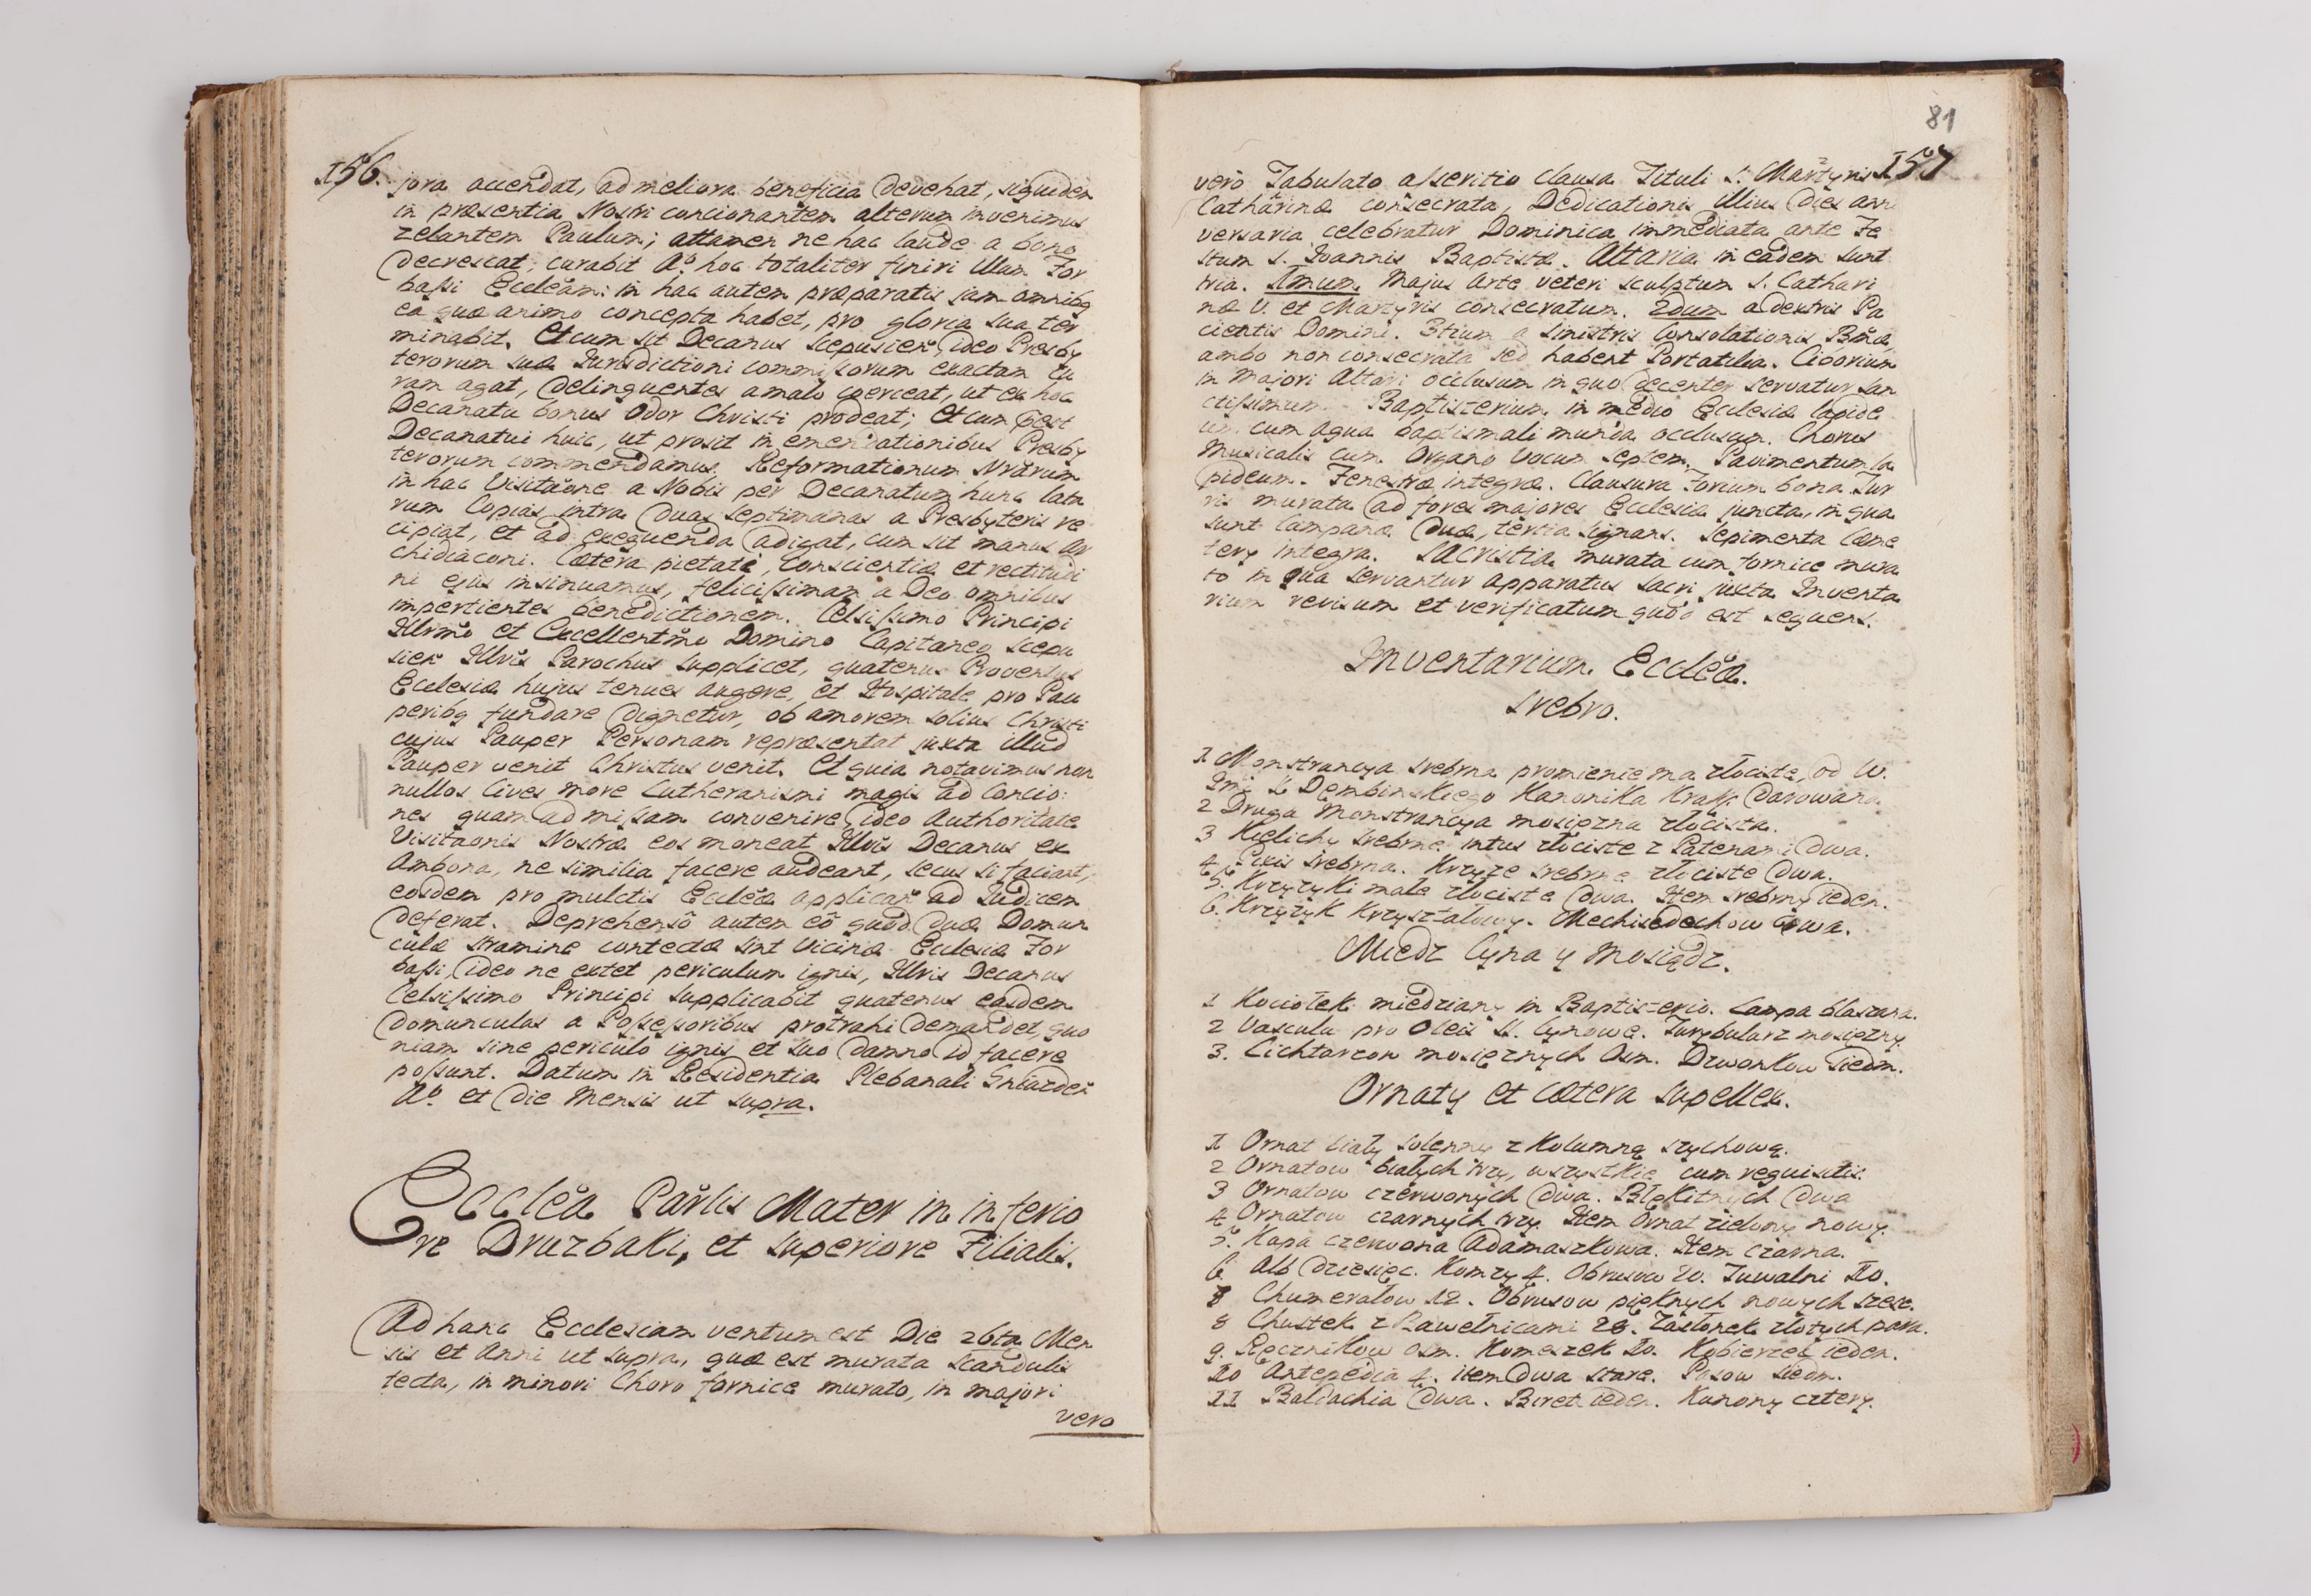 156.
jora accendat, ad meliora beneficia devehat, siquidem
in præsentia Nostri concionantem alterum invenimus
zelantem Paulum; attamen ne hac laude a bono
decrescat, curabit Aº hoc totaliter finiri illam For
bassi Ecclẽam: in hac autem præparatis jam omnibq
ea quæ animo concepta habet, pro gloria sua ter
minabit. Et cum sit Decanus Scepusieñ, ideo Presby
terorum suæ Jurisdictioni commissorum exactam cu
ram agat, delinquentes a malo coerceat, ut ex hoc
Decanatu bonus odor Christi prodeat; Et cum
Decanatui huic, ut prosit in emendationibus Presby
terorum commendamus. Reformationum Nrarum
in hac Visitaõne a Nobis per Decanatum hunc lata
rum Copias intra duas septimanas a Presbyteris re
cipiat, et ad exequenda adigat, cum sit manus Ar
chidiaconi. Cætera pietati, Conscientiæ et rectitudi
ni ejus insinuamus, felicissimam a Deo omnibus
impertientes benedictionem. Celsissimo Principi
Illrmõ et Excellentmõ Domino Capitaneo Scepu
sieñ Illris Parochus supplicet, quatenus Proventus
Ecclesiæ hujus tenues augere, et Hospitale pro Pau
peribq fundare dignetur, ob amorem solius Christi
cujus Pauper Personam repræsentat juxta illud
Pauper venit Christus venit. Et quia notavimus non
nullos Cives more Lutheranismi magis ad Concio:
nes quam ad missam convenire, ideo Authoritate
Visitaonis Nostræ eos moneat Illris Decanus ex
Ambona, ne similia facere audeant, secus si faciant,
eosdem pro mulctis Ecclẽæ applicañ ad Judicem
deferat. Deprehensõ autem eõ quod duæ Domun
culæ stramine contectæ sint vicinæ Ecclesiæ For
bassi, ideo ne extet periculum ignis, Illris Decanus
Celsissimo Principi supplicabit quatenus easdem
domunculas a Possessoribus protrahi demandet, quo
niam sine periculo ignis et suo damno id facere
possunt. Datum in Residentia Plebanali Gniazdeñ
Aº et die Mensis ut supra.
Ecclẽa Parlis Mater in inferio
re Druzbaki, et superiore Filialis.
Ad hanc Ecclesiam ventum est Die 26ta Men
sis et Anni ut supra, quæ est murata scandulis
tecta, in minori Choro fornice murato, in majori
vero
81
157
vero Tabulato asseritio clausa Tituli S. Martyris
Catharinæ consecrata, Dedicationis illius dies anni
versaria celebratur Dominica immediata ante Fe
stum S. Joannis Baptistæ. Altaria in eadem sunt
tria. 1mum Majus Arte veteri sculptum S. Cathari
næ V. et Martyris consecratum. 2dum a dextris Pa
cientis Domini. 3tium a sinistris Consolationis Bmæ,
ambo non consecrata sed habent Portatilia. Ciborium
in Majori Altari occlusum in quo decenter servatur San
ctissimum. Baptisterium in medio Ecclesiæ lapide
um cum aqua baptismali munda occlusum. Chorus
Musicalis cum Organo Vocum septem. Pavimentum la
pideum. Fenestræ integræ. Clausura forium bona. Tur
ris murata ad fores majores Ecclesiæ juncta, in qua
sunt Campanæ duæ, tertia signans. Sepimenta Cæme
tery integra. Sacristia murata cum fornice mura
to in qua servantur apparatus sacri juxta Inventa
rium revisum et verificatum quod est sequens.
Inventarium Ecclẽæ.
Srebro.
1 Monstrancya srebrna promienie ma złociste, od W.
Jmć X Dembinskiego Kanonika Krakk. darowana.
2 Druga Monstrancya mosięzna złocista.
3 Kielichy srebrne intus złociste z Patenami dwa.
4 Pixis srebrna. Krzyże srebrne złociste dwa.
5. Krzyzyki małe złociste dwa. Item srebrny ieden.
6. Krzyżyk Krzyształowy. Mechisedechow dwa.
Miedz Cyna y Mosiądz.
1 Kociołek miedziany in Baptisterio. Lampa blaszana.
2 Vascula pro Oleis SS. Cynowe. Turybularz mosięzny.
3. Lichtarzow mosięznych Osm. Dzwonkow Siedm.
Ornaty et cætera supellex.
1 Ornat biały solenny z Kolumną szychową.
2 Ornatow białych trzy, wszystkie cum requisitis.
3 Ornatow czerwonych dwa. Błękitnych dwa
4 Ornatow czarnych trzy. Item Ornat zielony nowy.
5. Kapa czerwona Adamaszkowa. Item czarna.
6. Alb dziesięc. Komzy 4. Obrusow 20. Tuwalni 10.
7 Chumerałow 12. Obrusow pięknych nowych szesc.
8 Chustek z Bawełnicami 28. Zasłonek złotych para.
9. Ręcznikow osm. Komeszek 10. Kobierzec ieden.
10 Antepedia 4. item dwa stare. Pasow siedm.
11 Baldachia dwa. Biret ieden. Kanony cztery.